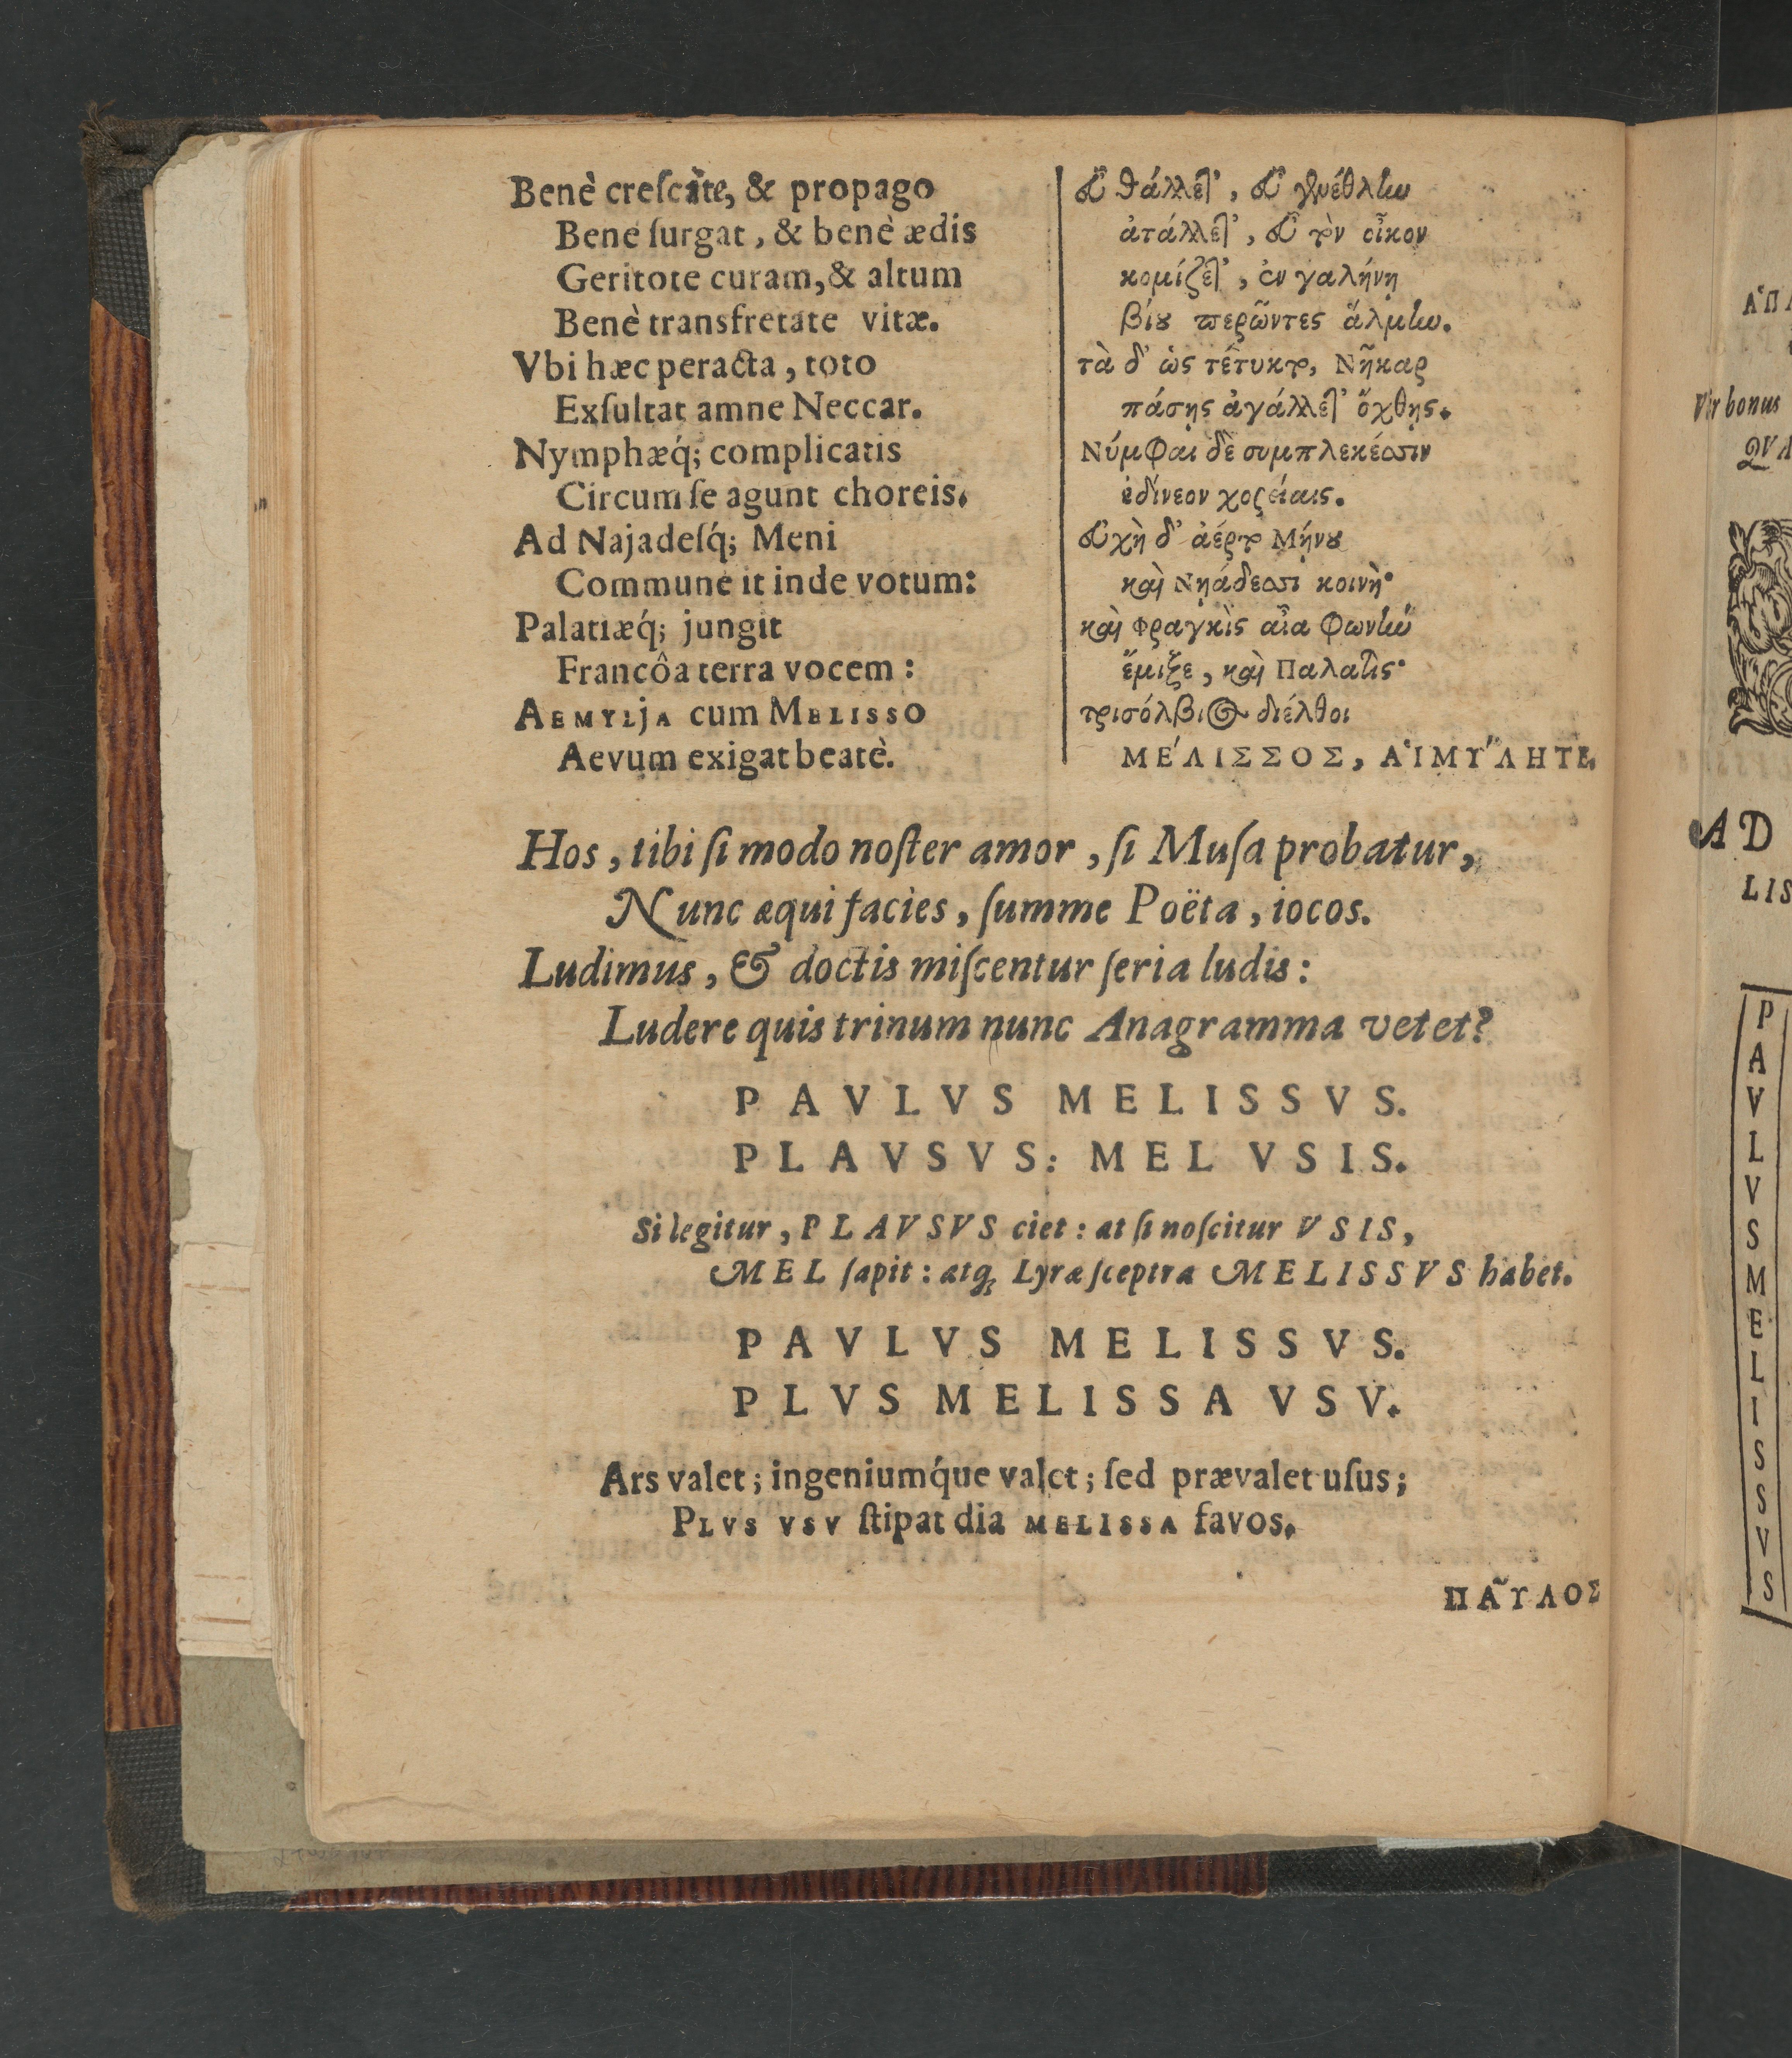 Benè creſcite, & propago
Benè ſurgat, & benè ædis
Geritote curam, & altum
Benè transfretate vitæ.
Vbi hæc peracta, toto
Exſultat amne Neccar.
Nymphæq́; complicatis
Circum ſe agunt choreis.
Ad Najadeſq́; Meni
Commune it inde votum:
Palatiæq́; jungit
Francôa terra vocem:
AEMYLjA cum MELISSO
Aevum exigat beatè.
εὖ θάλλετ', εὖ γενέθλην
ἀτάλλετ', εὖ τὸν οἶκον
κομίζετ', ἐν γαλήνῃ
βίου περῶντες ἅλμην.
τὰ δ' ὡς τέτυκτο, Νῆκαρ
πάσῃς ἀγάλλετ' ὄχθῃς.
Νύμφαι δὲ συμπλεκέεσσιν
ἐδίνεον χορείαις.
εὐχὴ δ' ἀέρτο Μήνου
καὶ Νηάδεσσι κοινή·
καὶ Φραγκὶς αἶα φωνὴν
ἔμιξε, καὶ Παλατίς·
τρισόλβιος διέλθοι
ΜΕ΄ΛΙΣΣΟΣ, ΑἹΜΥ΄ΛΗ ΤΕ.
Hos, tibi ſi modo noſter amor, ſi Muſa probatur,
Nunc æqui facies, ſumme Poëta, iocos.
Ludimus, & doctis miſcentur ſeria ludis:
Ludere quis trinum nunc Anagramma vetet?
PAVLVS MELISSVS.
PLAVSVS: MEL VSIS.
Si legitur, PLAVSVS ciet: at ſi noſcitur VSIS,
MEL ſapit: atq; Lyræ ſceptra MELISSVS habet.
PAVLVS MELISSVS.
PLVS MELISSA VSV.
Ars valet; ingeniumq́ue valet; ſed prævalet uſus;
PLVS VSV ſtipat dia MELISSA favos.
ΠΑ͂ΥΛΟΣ
Vir bonus
AD
LIS
P
A
V
L
V
S
M
E
L
I
S
S
V
S